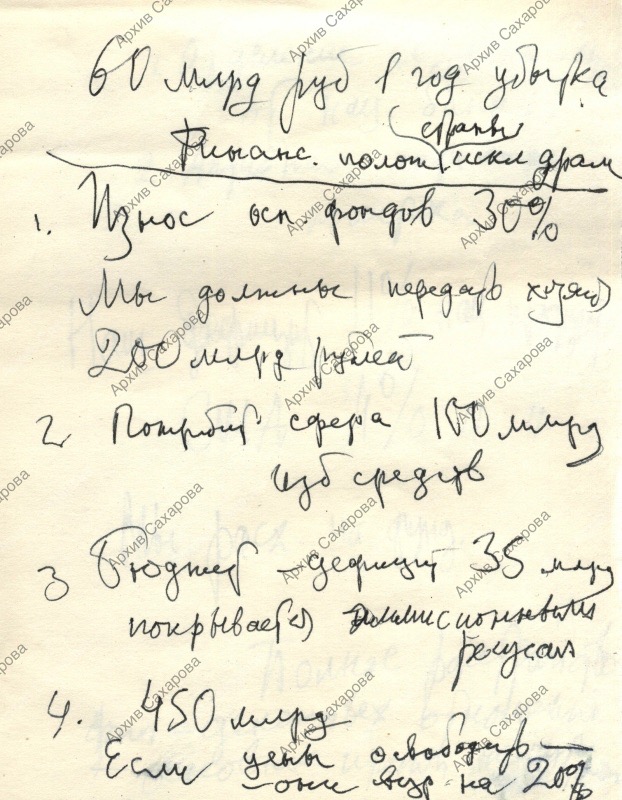 60 млрд руб в год убытка
страны
Финанс. полож искл драм
1. Износ осн фондов 30%
Мы должны передать хозяйс
200 млрд рублей
2. Потребит сфера 100 млрд
изб средств
3 Бюджет – дефицит 35 млрд
покрывается эмиссионными
ресурсам
4. 450 млрд
Если цены освободить –
они на 20%